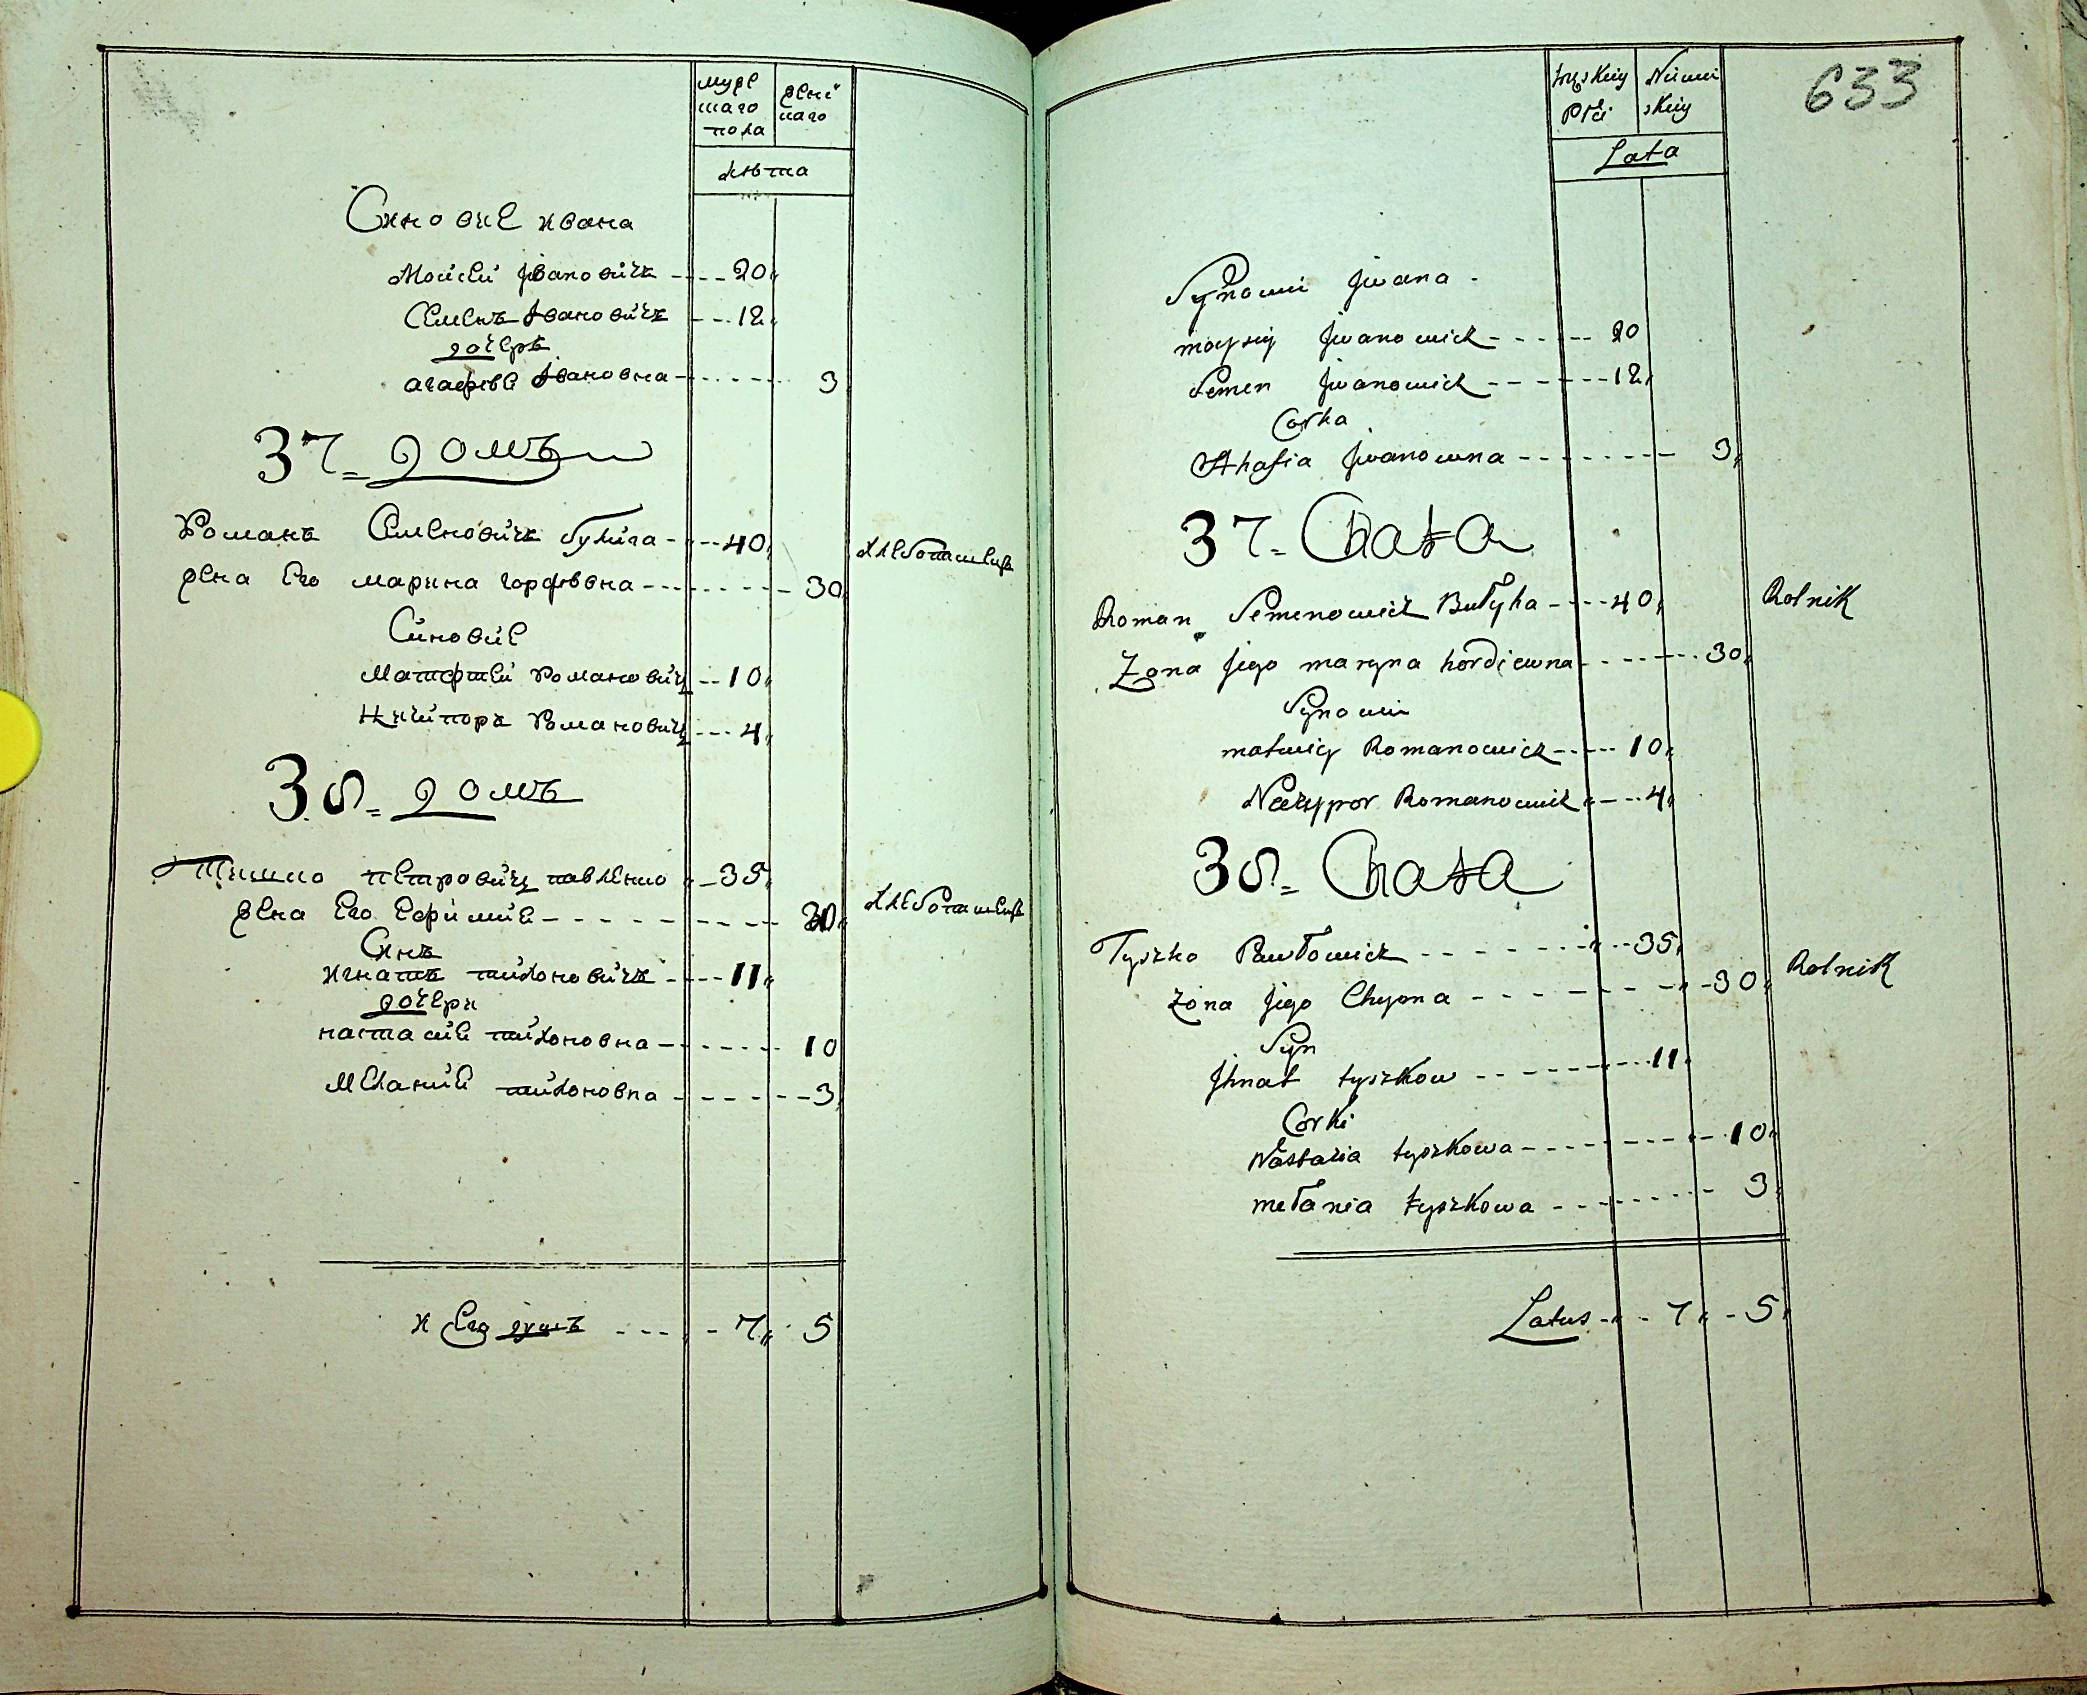 муже
шаго
пола
жені
наго
лѣта
Синовиѐ ивана
Мойсей Јвановичъ 20
Семенъ Јвановичъ 12
дочеръ
агафія Јвановна 3
37 = домъ
Романъ Семеновичъ булига 40 хлебопашецъ
жена Его марина гордѣевна 30
Синовиѐ
Матфтей Романовичъ 10
Ничипоръ Романовичъ 4
38 = домъ
Тишко петровичъ павленко 35
жена Его Ефимиѐ 30 хлебопашецъ
Синъ
игнатъ тихоновичъ 11
дочери
настасиѐ тихоновна 10
Меланиѐ тихоновна 3
и Его душъ 7 5
633
męskiey
Płći
Niewi
skiey
Lata
Synowie Jwana
moysiy Jwanowicz 20
Semen Jwanowicz 12
Corka
Ahafia Jwanowna 3
37 = Chata
Roman Semenowicz Bułyha 40 Rolnik
Zona jego maryna hordiewna 30
Synowie
matwiey Romanowicz 10
Neczypor Romanowicz 4
38 = Chata
Tyszko Pawłowicz 35 Rolnik
Zona jego Chyma 30
Syn
Jhnat tyszkow 11
Corki
Nastazia tyszkowa 10
mełania tyszkowa 3
Latus 7 5